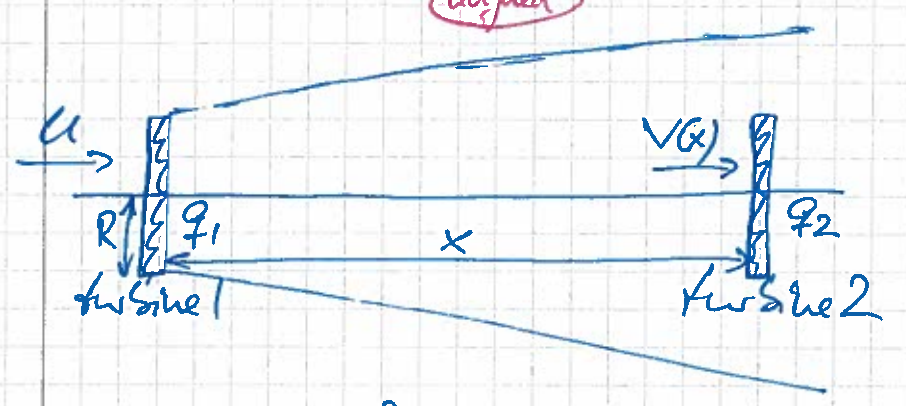 U
V(x)
R
q₁
x
q₂
turbine 1
turbine 2